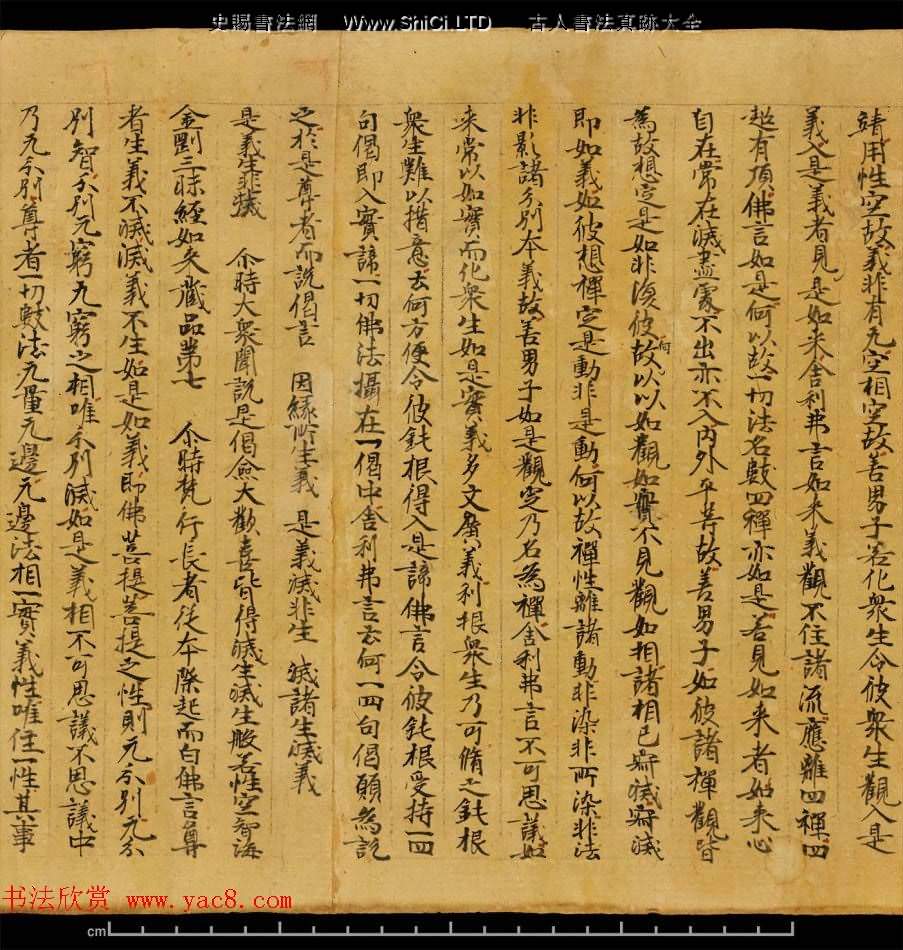 史賜書法網 Www.ShiCi.LTD 古人書法真跡大全
靖用性空故義非有无空相空故善男子若化衆生令彼衆生觀入是
義入是義者見是如来舍利弗言如来義觀不住諸流應離四禪四
超有頂佛言如是何以故一切法名數四禪亦如是若見如来者如来心
自在常在滅盡處不出亦不入内外平等故善男子如彼諸禪觀皆
為故想定是如非須彼何故以以如觀如實不見觀如相諸相已寂滅寂滅
即如義如彼想禪定是動非是動何以故禪性離諸動非染非所染非法
非影諸分别本義故善男子如是觀定乃名為禪舍利弗言不可思議如
来常以如實而化衆生如是實義多文廣義利根衆生乃可脩之鈍根
衆生難以措意云何方便令彼鈍根得入是諦佛言令彼鈍根受持一四
句偈即入實諦一切佛法攝在一偈中舍利弗言云何一四句偈願為説
之於是尊者而説偈言 因緣所生義 是義滅非生 滅諸生滅義
是義生非滅 尒時大衆聞説是偈僉大歡喜皆得滅生滅生般若性空智海
金剛三昧經如来藏品第七 尒時梵行長者従本際起而白佛言尊
者生義不滅滅義不生如是如義即佛菩提菩提之性則无分别无分
别智分别无窮无窮之相唯分别滅如是義相不可思議不思議中
乃无分别尊者一切數法无量无邊无邊法相一實義性唯住一性其事
书法欣赏 www.yac8.com
cm